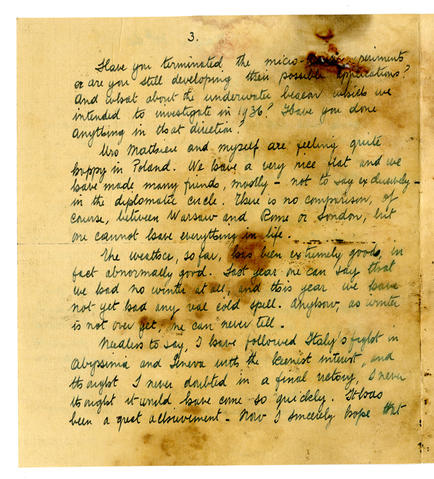 3.
Have you terminated the micro-wave experiments
or are you still developing their possible applications?
And what about the underwater beacon which we
intended to investigate in 1936? Have you done
anything in that direction?
Mrs Mathieu and myself are feeling quite
happy in Poland. We have a very nice flat and we
have made many friends, mostly - not to say exclusively -
in the diplomatic circle. There is no comparison, of
course, between Warsaw and Rome or London, but
one cannot have everything in life.
The weather, so far, has been extremely good, in
fact abnormally good. Last year one can say that
we had no winter at all, and this year we have
not yet had any real cold spell. Anyhow, as winter
is not over yet, one can never tell.
Needless to say, I have followed Italy's fight in
Abyssinia and Geneva with the keenest interest, and
thought I never doubted in a final victory, I never
thought it would have come so quickly. It has
been a great achievement. Now I sincerely hope that